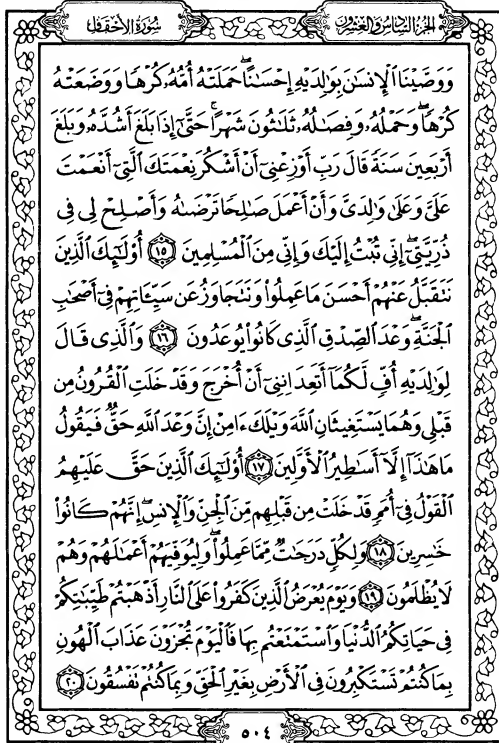 سُورَةُ الأَحْقَافِ
الجُزءُ السَّادِسُ وَالعِشْرُونَ
وَوَصَّيْنَا ٱلْإِنسَٰنَ بِوَٰلِدَيْهِ إِحْسَٰنًا ۖ حَمَلَتْهُ أُمُّهُۥ كُرْهًا وَوَضَعَتْهُ
كُرْهًا ۖ وَحَمْلُهُۥ وَفِصَٰلُهُۥ ثَلَٰثُونَ شَهْرًا ۚ حَتَّىٰٓ إِذَا بَلَغَ أَشُدَّهُۥ وَبَلَغَ
أَرْبَعِينَ سَنَةً قَالَ رَبِّ أَوْزِعْنِىٓ أَنْ أَشْكُرَ نِعْمَتَكَ ٱلَّتِىٓ أَنْعَمْتَ
عَلَىَّ وَعَلَىٰ وَٰلِدَىَّ وَأَنْ أَعْمَلَ صَٰلِحًا تَرْضَىٰهُ وَأَصْلِحْ لِى فِى
ذُرِّيَّتِىٓ ۖ إِنِّى تُبْتُ إِلَيْكَ وَإِنِّى مِنَ ٱلْمُسْلِمِينَ ١٥ أُو۟لَٰٓئِكَ ٱلَّذِينَ
نَتَقَبَّلُ عَنْهُمْ أَحْسَنَ مَا عَمِلُوا۟ وَنَتَجَاوَزُ عَن سَيِّـَٔاتِهِمْ فِىٓ أَصْحَٰبِ
ٱلْجَنَّةِ ۖ وَعْدَ ٱلصِّدْقِ ٱلَّذِى كَانُوا۟ يُوعَدُونَ ١٦ وَٱلَّذِى قَالَ
لِوَٰلِدَيْهِ أُفٍّ لَّكُمَآ أَتَعِدَانِنِىٓ أَنْ أُخْرَجَ وَقَدْ خَلَتِ ٱلْقُرُونُ مِن
قَبْلِى وَهُمَا يَسْتَغِيثَانِ ٱللَّهَ وَيْلَكَ ءَامِنْ إِنَّ وَعْدَ ٱللَّهِ حَقٌّ فَيَقُولُ
مَا هَٰذَآ إِلَّآ أَسَٰطِيرُ ٱلْأَوَّلِينَ ١٧ أُو۟لَٰٓئِكَ ٱلَّذِينَ حَقَّ عَلَيْهِمُ
ٱلْقَوْلُ فِىٓ أُمَمٍ قَدْ خَلَتْ مِن قَبْلِهِم مِّنَ ٱلْجِنِّ وَٱلْإِنسِ ۖ إِنَّهُمْ كَانُوا۟
خَٰسِرِينَ ١٨ وَلِكُلٍّ دَرَجَٰتٌ مِّمَّا عَمِلُوا۟ ۖ وَلِيُوَفِّيَهُمْ أَعْمَٰلَهُمْ وَهُمْ
لَا يُظْلَمُونَ ١٩ وَيَوْمَ يُعْرَضُ ٱلَّذِينَ كَفَرُوا۟ عَلَى ٱلنَّارِ أَذْهَبْتُمْ طَيِّبَٰتِكُمْ
فِى حَيَاتِكُمُ ٱلدُّنْيَا وَٱسْتَمْتَعْتُم بِهَا فَٱلْيَوْمَ تُجْزَوْنَ عَذَابَ ٱلْهُونِ
بِمَا كُنتُمْ تَسْتَكْبِرُونَ فِى ٱلْأَرْضِ بِغَيْرِ ٱلْحَقِّ وَبِمَا كُنتُمْ تَفْسُقُونَ ٢٠
٥٠٤